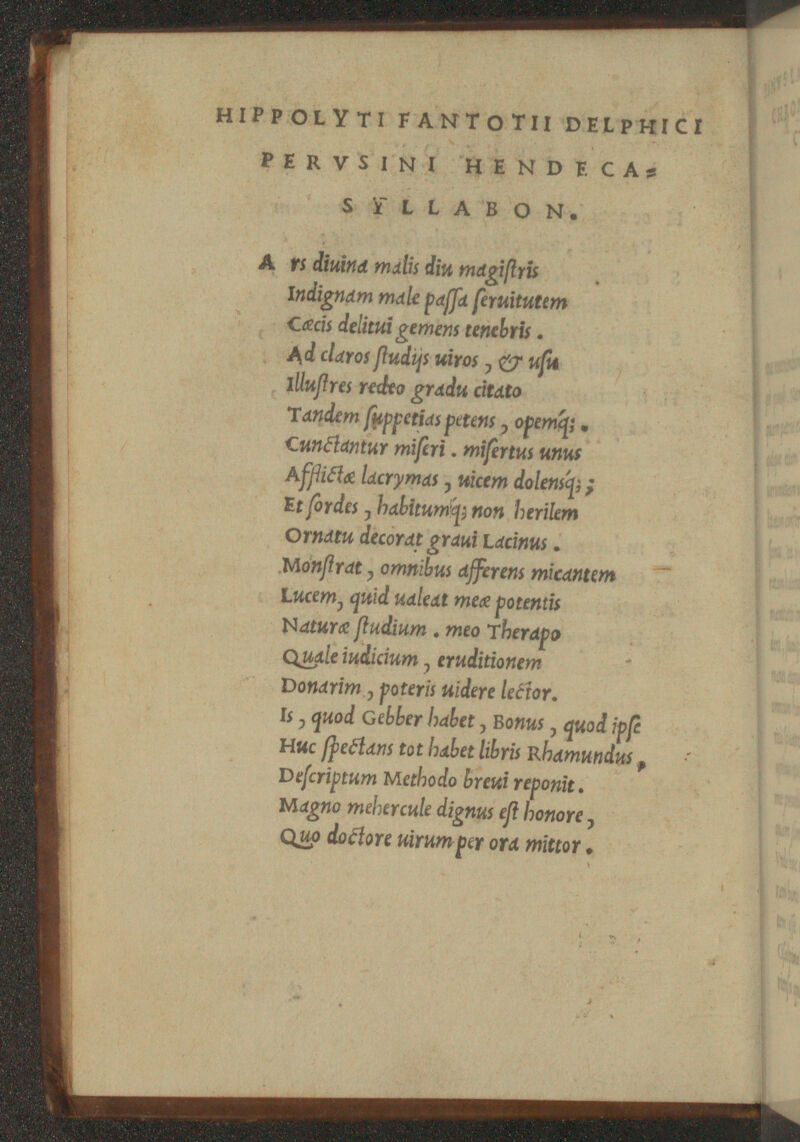 HIPPOLYTI FANTOTII DELPHICI
PERVSINI HENDECA⸗
SYLLABON.
Ars diuina malis diu magiſtris
Indignam male paſſa ſeruitutem
Cæcis delitui gemens tenebris.
Ad claros ſtudijs uiros, & uſu
Illuſtres redeo gradu citato
Tandem ſuppetias petens, opemq́;.
Cunctantur miſeri. miſertus unus
Afflictæ lacrymas, uicem dolensq́;;
Et ſordes, habitumq́; non herilem
Ornatu decorat graui Lacinus.
Monſtrat, omnibus afferens micantem
Lucem, quid ualeat meæ potentis
Naturæ ſtudium. meo Therapo
Quale iudicium, eruditionem
Donarim, poteris uidere lector.
Is, quod Gebber habet, Bonus, quod ipſe
Huc ſpectans tot habet libris Rhamundus,
Deſcriptum Methodo breui reponit.
Magno mehercule dignus eſt honore,
Quo doctore uirum per ora mittor.